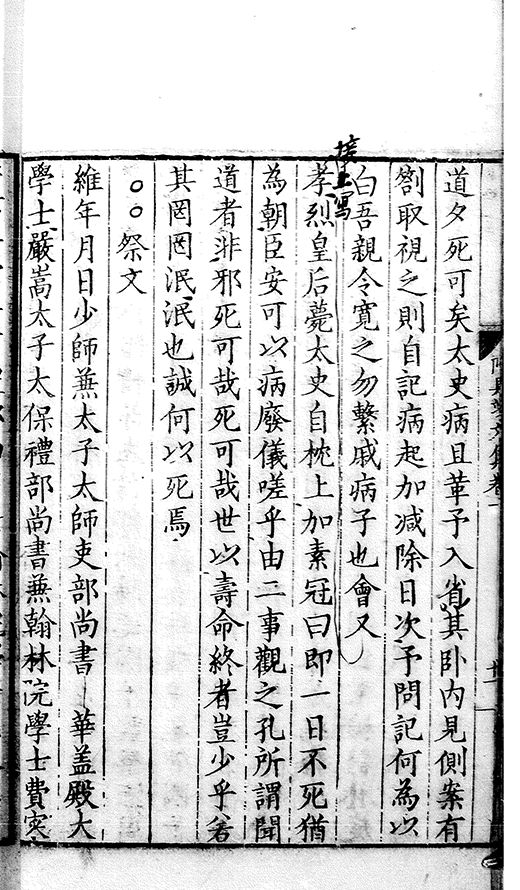 道夕死可矣太史病且革予入省其卧内見側案有
劄取視之則自記病起加减除日次予問記何為以
白吾親令寛之勿繫戚病子也會又
接上寫
孝烈皇后薨太史自枕上加素冠曰即一日不死猶
為朝臣安可以病廢儀嗟乎由二事觀之孔所謂聞
道者非邪死可哉死可哉世以壽命終者豈少乎若
其罔罔泯泯也誠何以死焉
○○祭文
維年月日少師蕪太子太師吏部尚書華盖殿大
學士嚴嵩太子太保禮部尚書蕪翰林院學士費寀